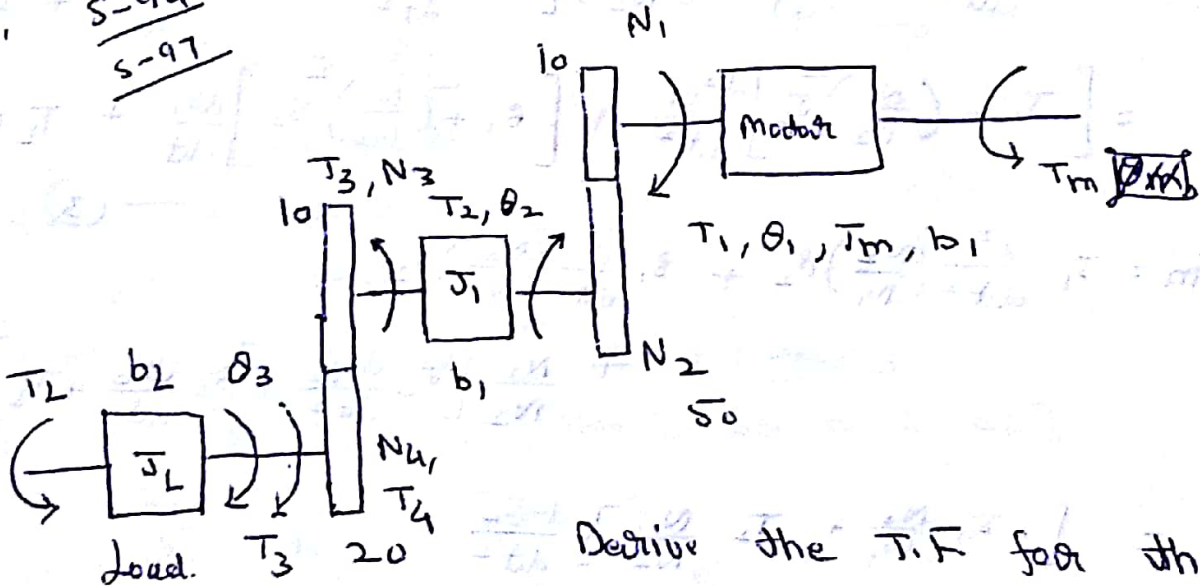 S-97
N1
10
Motor
Tm
T3, N3
10
T2, θ2
T1, θ1, Jm, b1
J1
b1
N2
50
TL
bL
θ3
JL
N4,
T4
Load.
T3
20
Derive the T.F for th